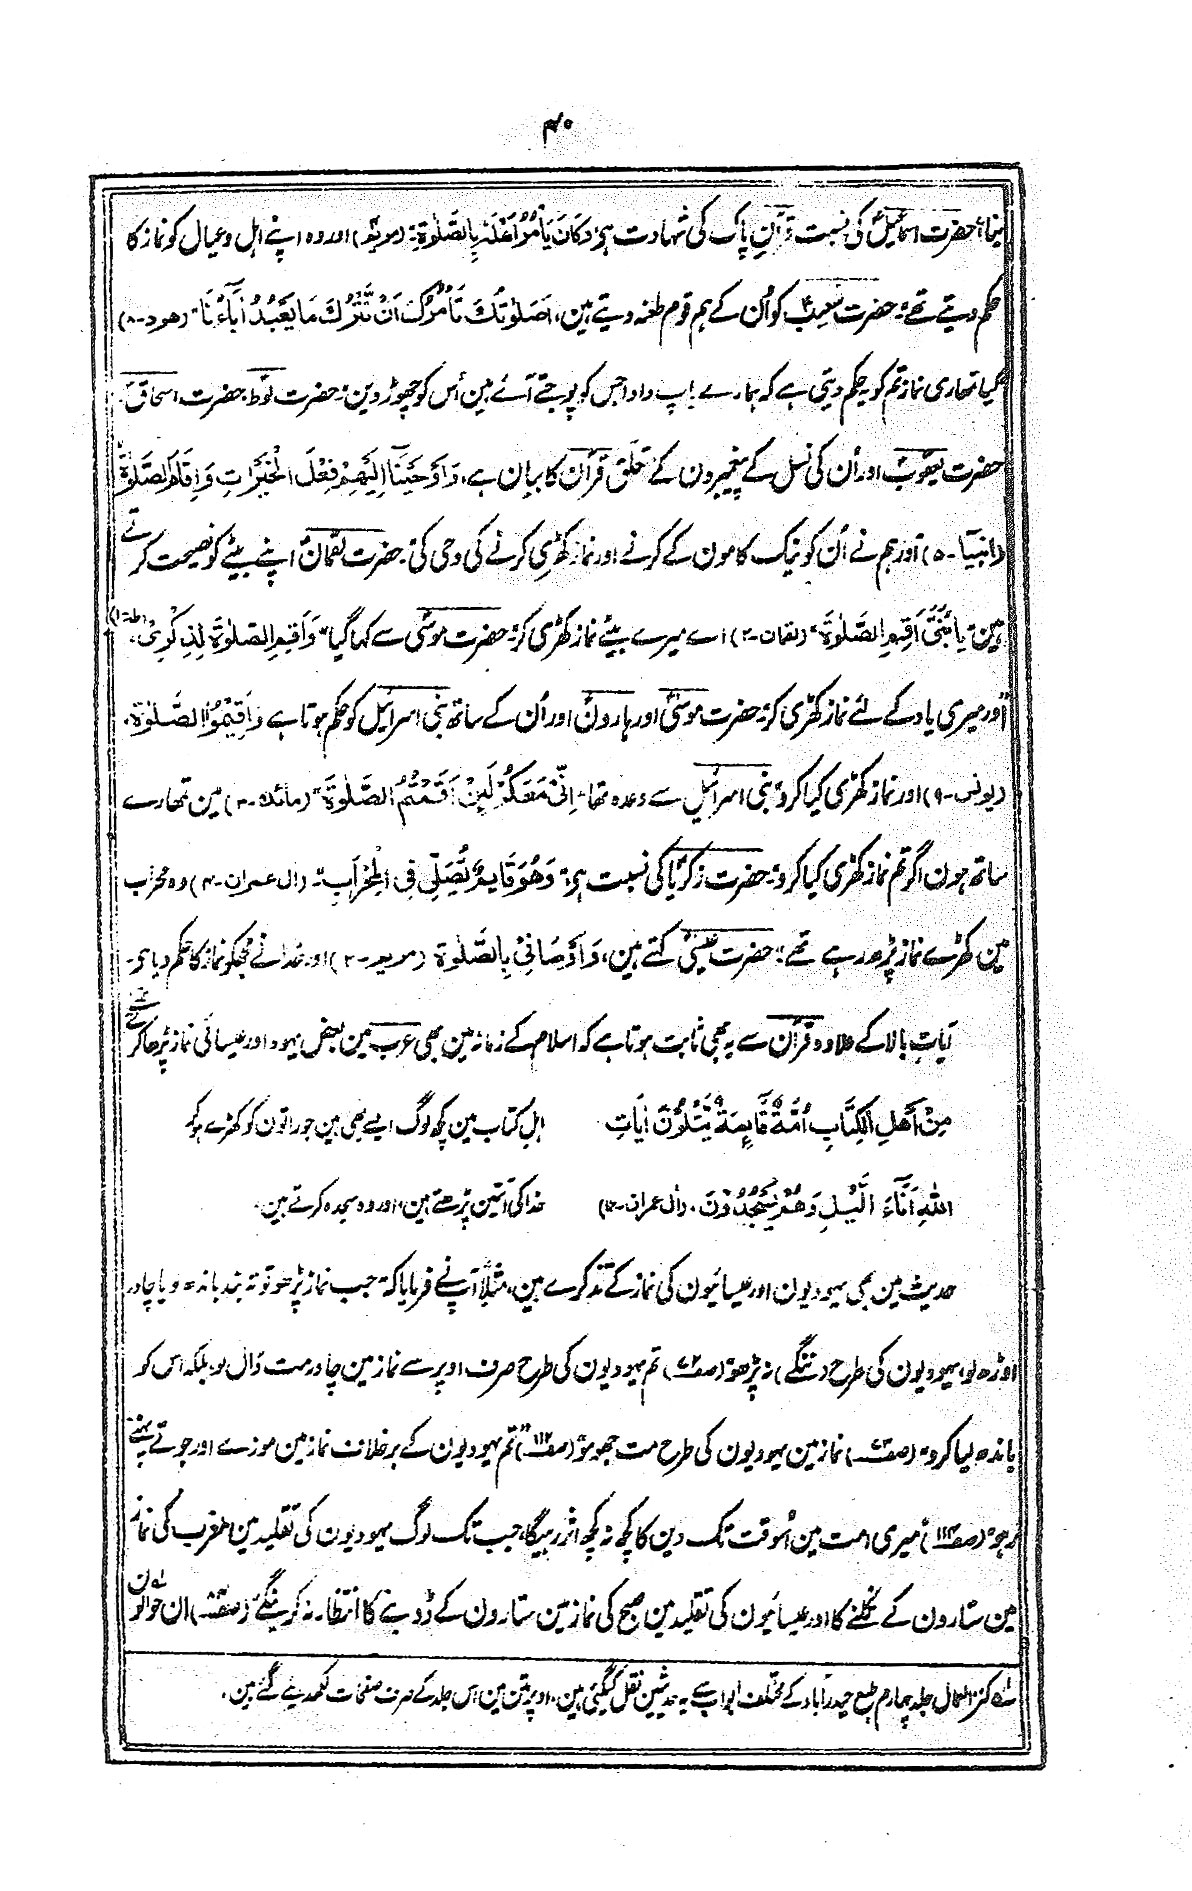 ۴۰
بنا، حضرت اسماعیلؑ کی نسبت قرآنِ پاک کی شہادت ہی، وَكَانَ يَأْمُرُ أَهْلَهٗ بِالصَّلٰوةِ، (مریم) اور وہ اپنے اہل و عیال کو نماز کا
حکم دیتے تھے؛ حضرت شعیبؑ کو اُن کے ہم قوم طعنہ دیتے ہین، اَصَلٰوتُكَ تَأْمُرُكَ اَنْ نَتْرُكَ مَا يَعْبُدُ اٰبَآءُنَا" (ھود-۸)
کیا تمھاری نماز تم کو یہ حکم دیتی ہے کہ ہمارے باپ دادا جس کو پوجتے آئے ہین اُس کو چھوڑ دین؛ حضرت لوطؑ، حضرت اسحاقؑ،
حضرت یعقوبؑ اور اُن کی نسل کے پیغمبرون کے متعلق قرآن کا بیان ہے، وَاَوْحَيْنَا اِلَيْهِمْ فِعْلَ الْخَيْرَاتِ وَاِقَامَ الصَّلٰوةِ
(انبیا-۵) اور ہم نے اُن کو نیک کامون کے کرنے اور نماز کھڑی کرنے کی وحی کی؛ حضرت لقمانؑ اپنے بیٹے کو نصیحت کرتے
ہین، يَا بُنَيَّ اَقِمِ الصَّلٰوةَ" (لقمان-۲) اے میرے بیٹے نماز کھڑی کر؛ حضرت موسیٰؑ سے کہا گیا "وَاَقِمِ الصَّلٰوةَ لِذِكْرِيْ، (طہ-۱)
اور میری یاد کے لئے نماز کھڑی کر؛ حضرت موسیٰؑ اور ہارونؑ اور اُن کے ساتھ بنی اسرائیل کو حکم ہوتا ہے وَاَقِيْمُوا الصَّلٰوةَ،
(یونس-۹) اور نماز کھڑی کیا کرو؛ بنی اسرائیل سے وعدہ تھا، اِنِّيْ مَعَكُمْ لَئِنْ اَقَمْتُمُ الصَّلٰوةَ" (مائدہ-۳) مین تمھارے
ساتھ ہون اگر تم نماز کھڑی کیا کرو؛ حضرت زکریاؑ کی نسبت ہی؛ وَهُوَ قَائِمٌ يُّصَلِّي فِي الْمِحْرَابِ" (اٰل عمران-۴) وہ محراب
مین کھڑے نماز پڑھ رہے تھے؛ حضرت عیسیٰؑ کہتے ہین، وَاَوْصَانِيْ بِالصَّلٰوةِ (مریم-۲) اور خدا نے مجھکو نماز کا حکم دیا ہی-
آیاتِ بالا کے علاوہ قرآن سے یہ بھی ثابت ہوتا ہے کہ اسلام کے زمانہ مین بھی عرب مین بعض یہود اور عیسائی نماز پڑھا کرتے تھے
مِنْ اَهْلِ الْكِتَابِ اُمَّةٌ قَائِمَةٌ يَّتْلُوْنَ اٰيَاتِ اہلِ کتاب مین کچھ لوگ ایسے بھی ہین جو راتون کو کھڑے ہو کر
اللّٰهِ اٰنَآءَ الَّيْلِ وَهُمْ يَسْجُدُوْنَ، (اٰل عمران-۱۲) خدا کی آیتین پڑھتے ہین، اور وہ سجدہ کرتے ہین،
حدیث مین بھی یہودیون اور عیسائیون کی نماز کے تذکرے ہین، مثلاً آپ نے فرمایا کہ "جب نماز پڑھو تو تہ بند باندھ لو یا چادر
اوڑھ لو، یہودیون کی طرح (ننگے) نہ پڑھو (صفحہ ۷۲) تم یہودیون کی طرح صرف اوپر سے نماز مین چادر مت ڈال لو، بلکہ اس کو
باندھ لیا کرو" (صفحہ) نماز مین یہودیون کی طرح مت جھومو" (صفحہ ۱۱۲) تم یہودیون کے برخلاف نماز مین موزے اور جوتے پہنے
رہو" (صفحہ ۱۱۳) میری امت مین اُسوقت تک دین کا کچھ نہ کچھ اثر رہیگا، جب تک لوگ یہودیون کی تقلید مین مغرب کی نماز
مین ستارون کے نکلنے کا اور عیسائیون کی تقلید مین صبح کی نماز مین ستارون کے ڈوبنے کا انتظار نہ کرینگے" (صفحہ) ان حوالون
لہ کنز العمال جلد چہارم طبع حیدرآباد کے مختلف ابواب سے یہ حدیثین نقل کیگئی ہین، اوپر متن مین اس جلد کے صرف صفحات لکھدیئے گئے ہین،